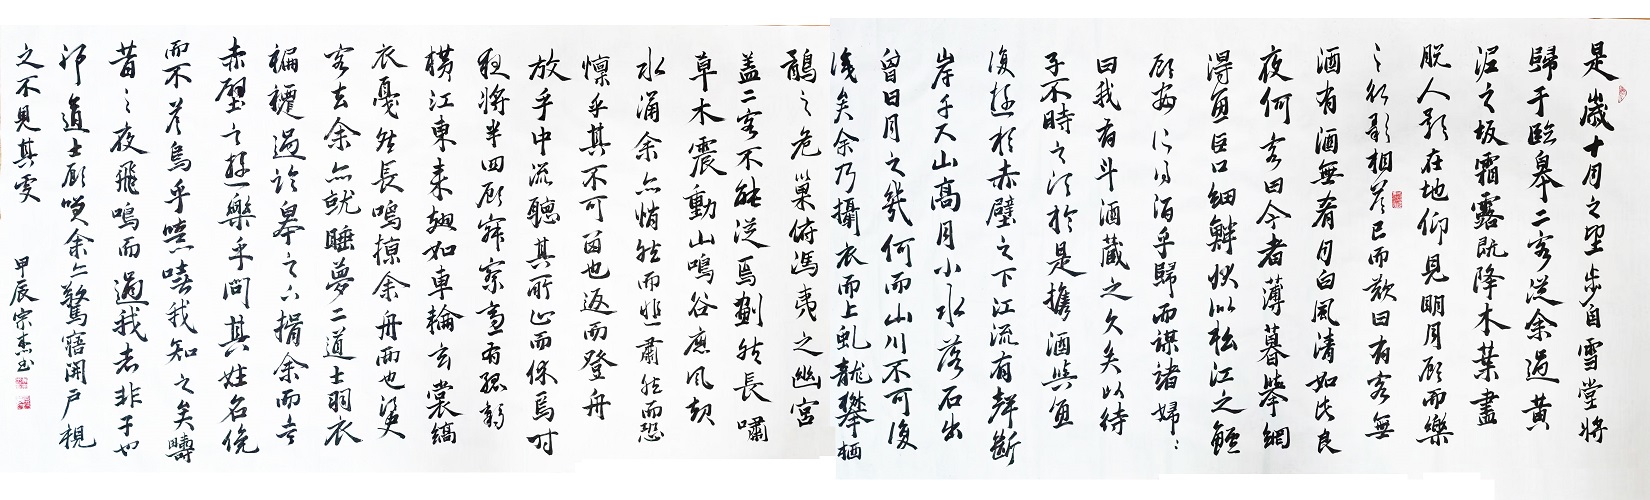 是歲十月之望步自雪堂將
歸于臨皋二客從余過黃
泥之坂霜露既降木葉盡
脫人影在地仰見明月顧而樂
之行歌相答已而歎曰有客無
酒有酒無肴月白風清如此良
夜何客曰今者薄暮舉網
得魚巨口細鱗狀似松江之鱸
顧安所得酒乎歸而謀諸婦〻
曰我有斗酒藏之久矣以待
子不時之須於是攜酒與魚
復遊於赤壁之下江流有聲斷
岸千尺山高月小水落石出
曾日月之幾何而山川不可復
識矣余乃攝衣而上虬龍攀栖
鶻之危巢俯馮夷之幽宮
蓋二客不能從焉劃然長嘯
草木震動山鳴谷應風起
水涌余亦悄然而悲肅然而恐
凜乎其不可留也返而登舟
放乎中流聽其所止而休焉時
夜將半四顧寂寥適有孤鶴
橫江東來翅如車輪玄裳縞
衣戛然長鳴掠余舟而西也須臾
客去余亦就睡夢二道士羽衣
蹁躚過臨皋之下揖余而言
赤壁之遊樂乎問其姓名俛
而不答烏乎噫嘻我知之矣疇
昔之夜飛鳴而過我者非子也
邪道士顧笑余亦驚寤開戶視
之不見其處
甲辰宗杰書